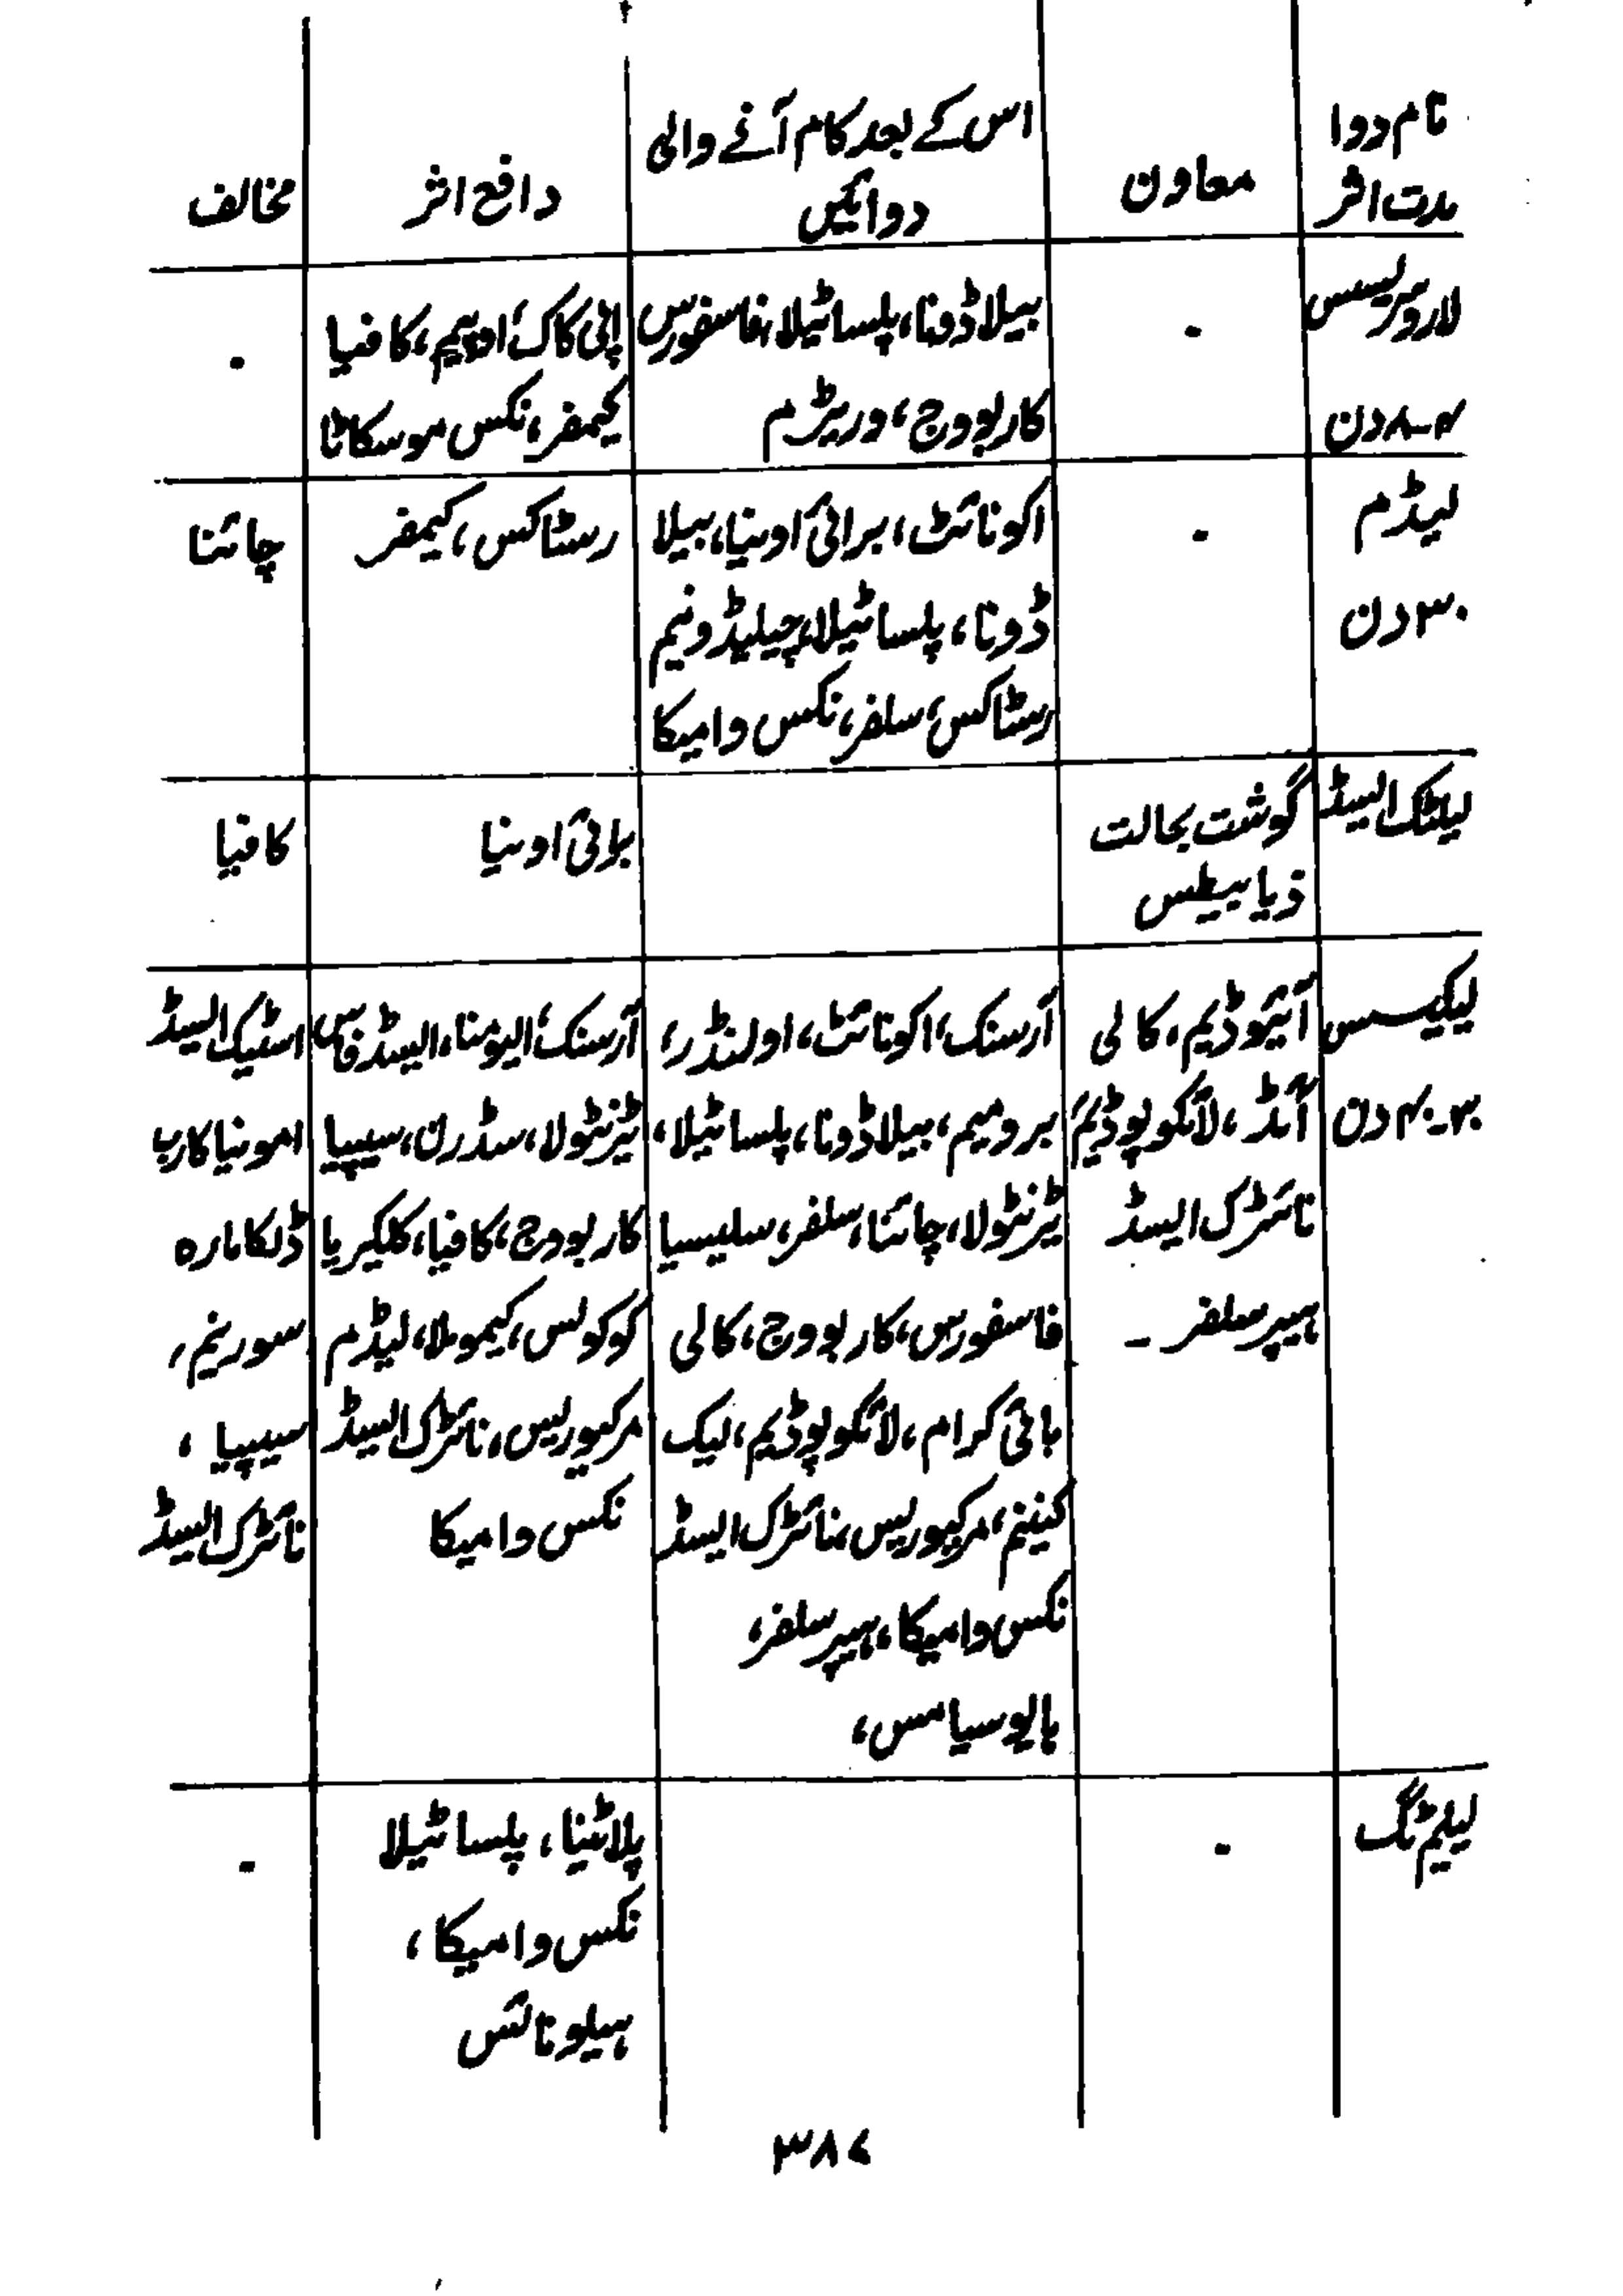 نام دوا
مدت اثر
معاون
اس کے بعد کام آنے والی
دوائیں
دافع اثر
مخالف
لاروسریسس
۴-۸ دن
-
بیلاڈونا، پلساٹیلا، فاسفورس
کاربووج، وریٹرم
اپی کاک، اوپیم، کافیا
کیمفر، نکس موسکاٹا
-
لیڈم
۳۰ دن
-
اکونائٹ، برائی اونیا، بیلا
ڈونا، پلساٹیلا، چیلیڈونیم
رسٹاکس، سلفر، نکس وامیکا
رسٹاکس، کیمفر
چائنا
لیکٹک ایسڈ
گوشت بحالت
ذیابیطس
برائی اونیا
کافیا
لیکیسس
۳۰-۴۰ دن
آئیوڈیم، کالی
آئڈ، لائکوپوڈیم
نائٹرک ایسڈ
ہیپر سلفر -
آرسنک، اکونائٹ، اولنڈر،
برومیم، بیلاڈونا، پلساٹیلا،
ٹرنٹولا، چائنا، سلفر، سلیسیا
فاسفورس، کاربووج، کالی
بائی کرام، لائکوپوڈیم، لیک
کینینم، مرکیوریس، نائٹرک ایسڈ
نکس وامیکا، ہیپر سلفر،
ہایوسیامس،
آرسنک، الیومنا، ایسڈ فاس
ٹرنٹولا، سڈرن، سیپیا
کاربووج، کافیا، کلکیریا
کوکولس، کیمومِلا، لیڈم
مرکیوریس، نائٹرک ایسڈ
نکس وامیکا
اسٹیک ایسڈ
امونیا کارب
ڈلکامارہ
سورینم،
سیپیا،
نائٹرک ایسڈ
لیلیم ٹگ
-
پلاٹینا، پلساٹیلا
نکس وامیکا،
ہیلونائس
-
۳۸۷